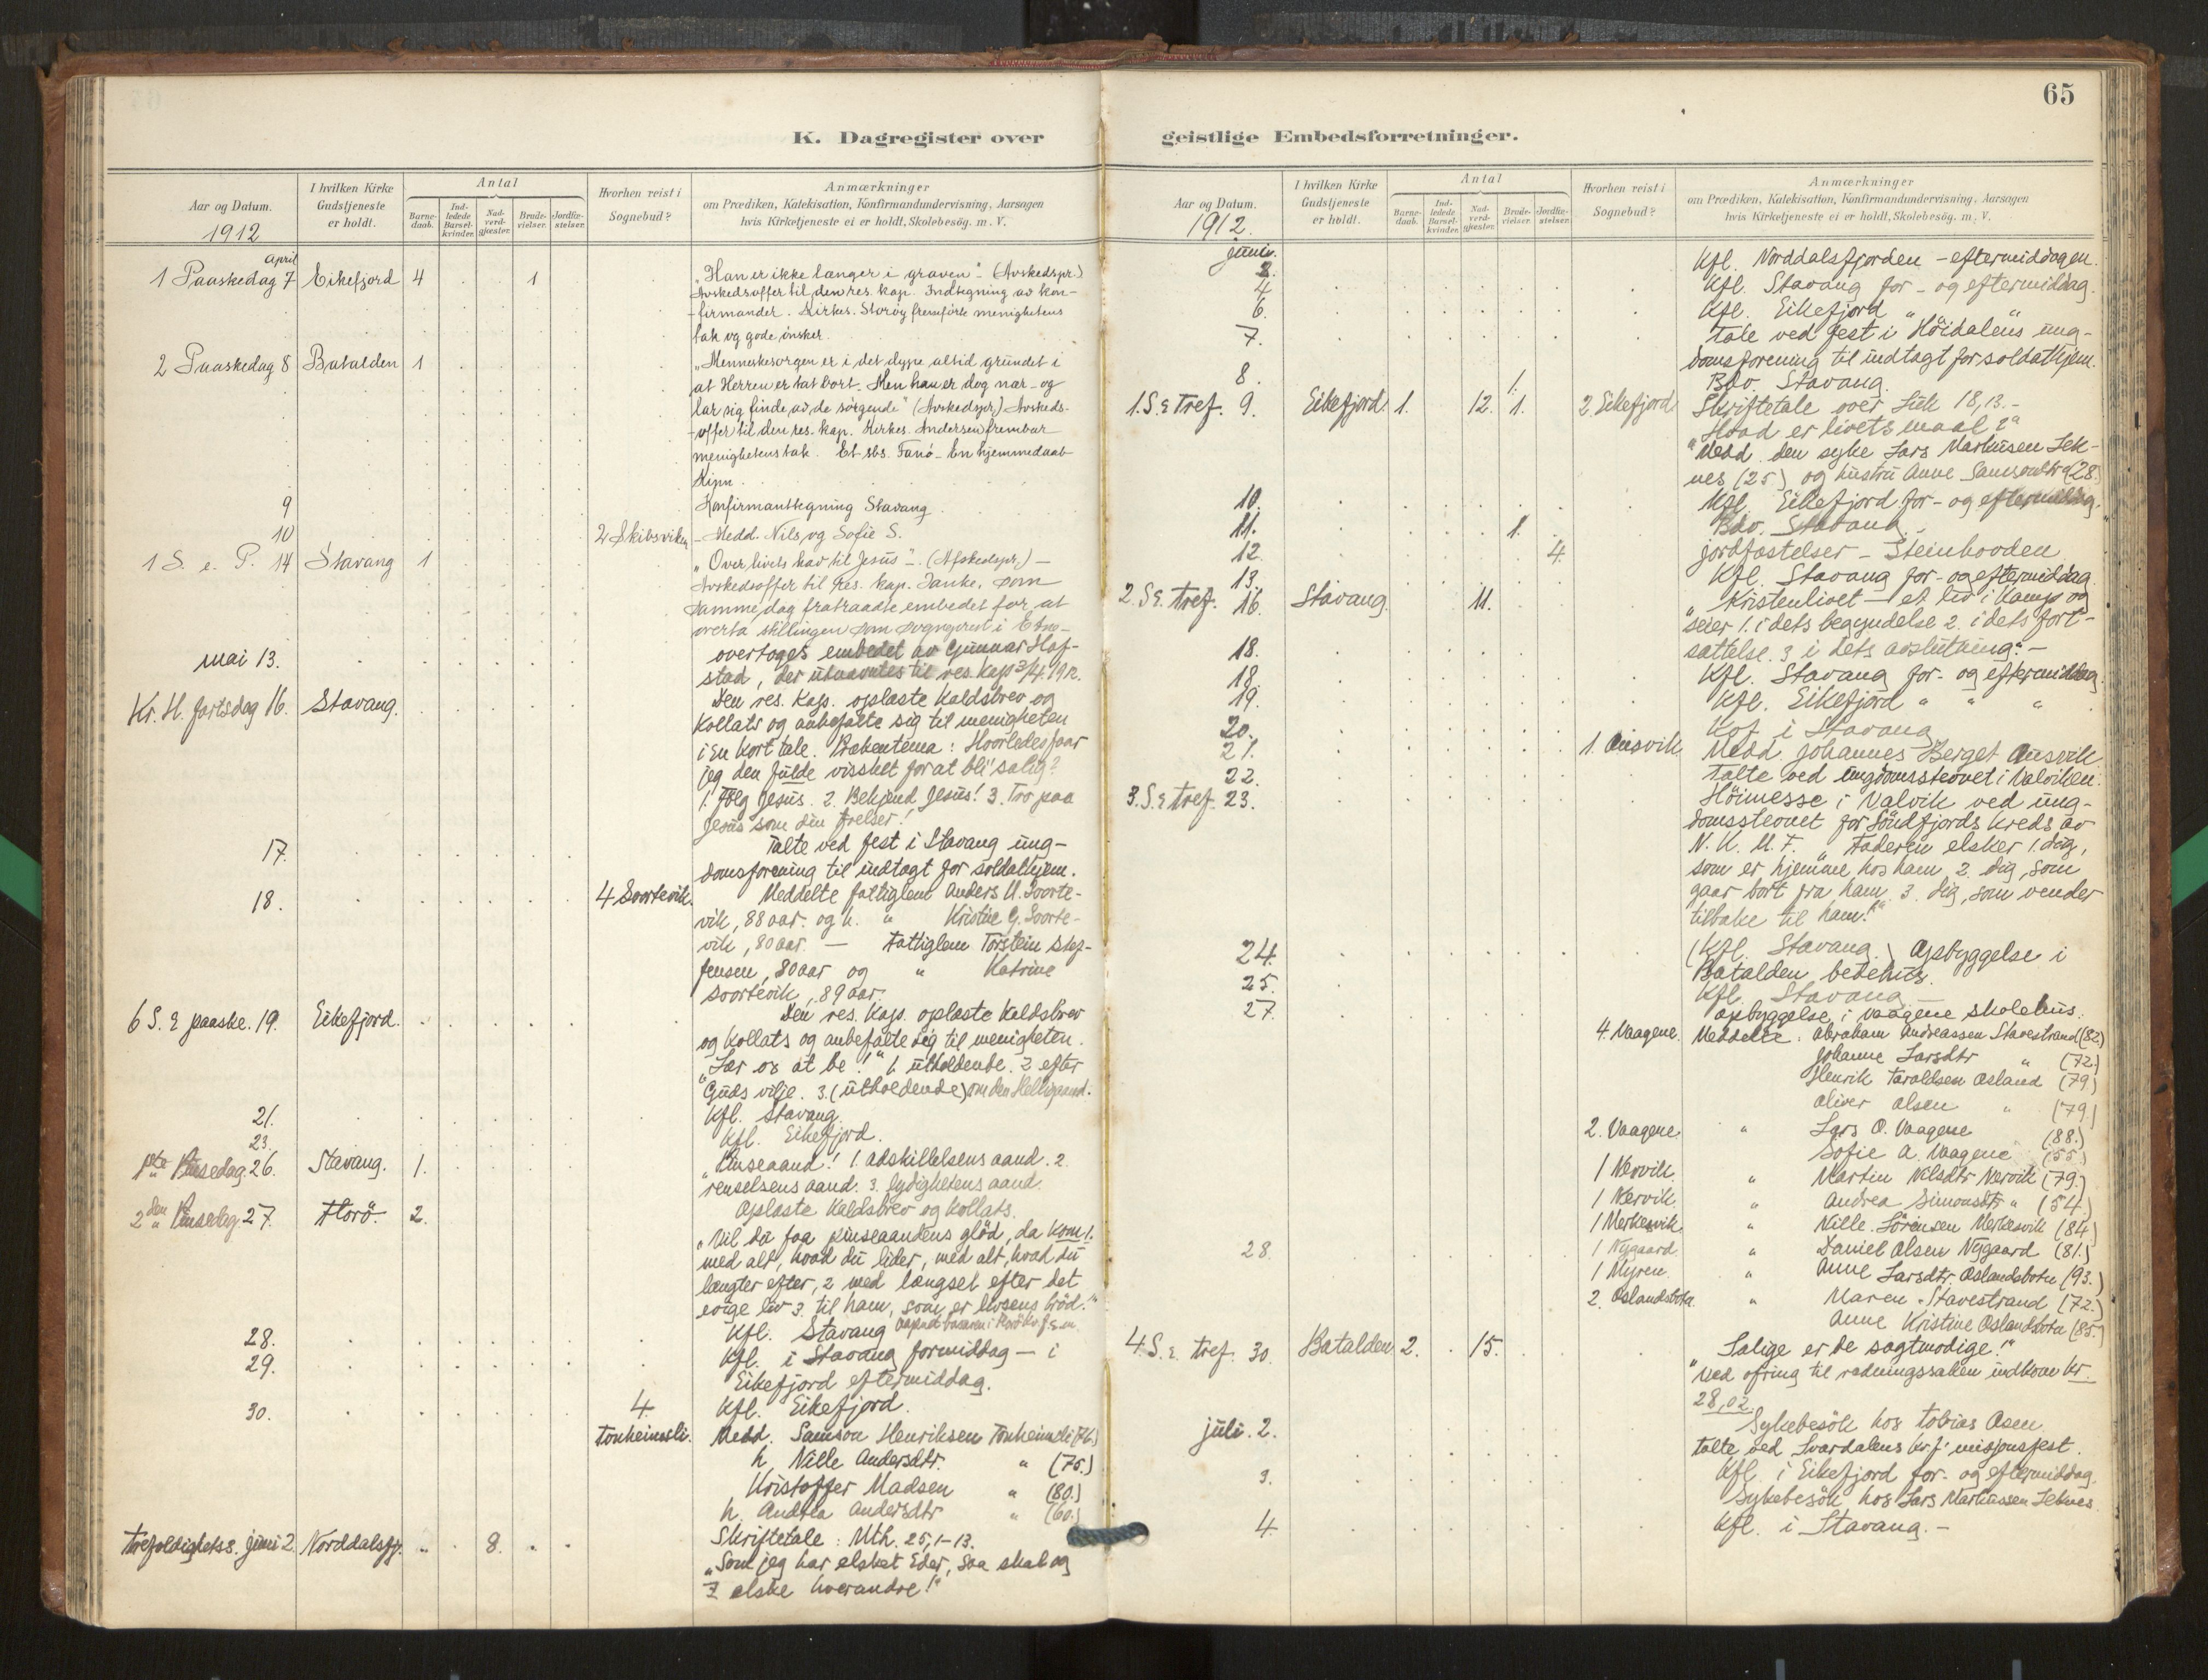 65
K. Dagregister over geistlige Embedsforretninger.
Aar og Datum.
1912
I hvilken Kirke Gudstjeneste er holdt.
Antal
Barne-daab.
Ind-ledede Barsel-kvinder.
Nad-verd-gjester.
Brude-vielser.
Jordfæ-stelser.
Hvorhen reist i Sognebud?
Anmærkninger
om Prædiken, Katekisation, Konfirmandundervisning, Aarsagen
hvis Kirketjeneste ei er holdt, Skolebesøg. m. V.
April
1 Paaskedag 7 Eikefjord 4 1 „Han er ikke længer i graven" - (Avskedspr.)
Avskedsoffer til den res. kap. Indtegning av kon-
firmander. Kirkes. Storøy fremførte menighetens
tak og gode ønsker.
2 Paaskedag 8 Batalden 1 „Menneskesorgen er i det dype altid grundet i
at Herren er tat bort. Men han er dog nær - og
lar sig finde av de sørgende" (Avskedspr.) Avskeds-
offer til den res. kap. Kirkes. Andersen frembar
menighetens tak. Et sbs. Fanø - En hjemmedaab
Kinn.
9 Konfirmanttegning Stavang
10 2 Skibsviken - Medd. Nils og Sofie S.
1 S. e. P. 14 Stavang 1 „Over livets hav til Jesus" - (Afskedspr.) -
Avskedsoffer til Res. kap. Janke, som
samme dag fratraadte embedet for at
overta stillingen som sogneprest i Etne -
mai 13. overtoges embedet av Gunnar Hof-
stad, der utnævntes til res. kap 3/4 1912.
Kr. H. fartsdag 16. Stavang. Den res. kap. oplæste kaldsbrev og
kollats og anbefalte sig til menigheten
i en kort tale. Prækentema: Hvorledes faar
jeg den fulde visshet for at bli salig?
1. Følg Jesus. 2. Bekjend Jesus! 3. Tro paa
Jesus som din frelser!
17. Talte ved fest i Stavang ung-
domsforening til indtægt for soldathjem.
18. 4 Svortevik. Meddelte fattiglem Anders M. Svorte-
vik, 88 aar. og h. " Kristine G. Svorte-
vik, 80 aar. — Fattiglem Torstein Stef-
fensen, 80 aar og " Katrine
Svortevik, 89 aar.
6 S. e paaske. 19. Eikefjord. Den res. Kap. oplæste kaldsbrev
og kollats og anbefalte sig til menigheten.
„Lær os at be!" 1. utholdende. 2 efter
Guds vilje. 3. (utholdende) om den Helligaand.
21. Kfl. Stavang.
23. Kfl. Eikefjord.
1ste Pinsedag. 26. Stavang. 1. „Pinseaand! 1. adskillelsens aand. 2.
renselsens aand. 3. lydighetens aand.
2den Pinsedag. 27. Florö. 2. Oplæste Kaldsbrev og kollats.
„Vil du faa pinseaandens glöd, da kom 1.
med alt, hvad du lider, med alt, hvad du
længter efter, 2 med længsel efter det
evige liv 3. til ham, som er livsens bröd."
28. Kfl. Stavang
29. Kfl. i Stavang formiddag — i
Eikefjord eftermiddag.
30. 4 Kfl. Eikefjord.
Tonheimsli. Medd. Samson Henriksen Tonheimsli (76.)
h. Nille Andersdtr. " (75.)
Kristoffer Madsen " (80.)
h. Andrea Andersdtr " (60.)
Trefoldighetss. juni 2 Norddalsfj. 8. Skriftetale: Mth. 25, 1-13.
„Som jeg har elsket Eder, saa skal og
I elske hverandre!"
Aar og Datum.
1912.
I hvilken Kirke Gudstjeneste er holdt.
Antal
Barne-daab.
Ind-ledede Barsel-kvinder.
Nad-verd-gjester.
Brude-vielser.
Jordfæ-stelser.
Hvorhen reist i Sognebud?
Anmærkninger
om Prædiken, Katekisation, Konfirmandundervisning, Aarsagen
hvis Kirketjeneste ei er holdt, Skolebesøg. m. V.
juni.
2. Kfl. Norddalsfjorden - eftermiddagen.
4 Kfl. Stavang for - og eftermiddag.
6. Kfl. Eikefjord " "
7. Tale ved fest i Höidalens ung-
domsforening til indtægt for soldathjem.
8. 1. Bdv. Stavang.
1. S. e Tref. 9. Eikefjord. 1. 12. 1. 2 Eikefjord. Skriftetale over Luk 18,13. -
„Hvad er livets maal?"
Medd. den syke Lars Markusen Lek-
nes (25) og hustru Anne Samsonsdtr (28.)
10. Kfl. Eikefjord for - og eftermiddag.
11. 1. Bdv. Stavang.
12. 4. jordfæstelser - Steinhovden
13. Kfl. Stavang for - og eftermiddag.
2. S e. Tref. 16. Stavang. 11. „Kristenlivet — et liv i kamp og
seier 1. i dets begyndelse 2. i dets fort-
sættelse. 3 i dets avslutning." -
18. Kfl. Stavang for - og eftermiddag.
18. Kfl. Eikefjord " " "
19.
20. Kfl. i Stavang
21. 1. Ausvik. Medd Johannes Berget Ausvik.
22. Talte ved ungdomsstevnet i Valviken.
3. S. e Tref. 23. Höimesse i Valvik ved ung-
domsstevnet for Söndfjords kreds av
N. K. U. F. „Faderen elsker 1. dig,
som er hjemme hos ham 2. dig, som
gaar bort fra ham. 3. dig, som vender
tilbake til ham!"
24. (Kfl. Stavang.) Opbyggelse i
Batalden bedehus.
25. Kfl. Stavang —
27. opbyggelse i vaagene skolehus.
4. Vaagene. Meddelte: Abraham Andreassen Stavestrand (82.)
Johanne Larsdtr " (72.)
Henrik Taraldsen Osland (79)
Oliver Olsen " (79.)
2. Vaagene. " Lars O. Vaagene (88.)
Sofie A. Vaagene (55.)
1 Nervik. " Martin Nilsdtr Nervik (79.)
1 Nervik. " Andrea Simonsdtr " (54.)
1 Merkesvik. " Nille Sörensen Merkesvik (84.)
28. 1 Nygaard. " Daniel Olsen Nygaard (81.)
1 Myren. " Anne Larsdtr. Oslandsbotn (93.)
2. Oslandsbotn. " Maren Stavestrand (72.)
Anne Kristine Oslandsbotn (85.)
4. S. e. Tref. 30. Batalden 2. 15. „Salige er de sagtmodige!"
Ved ofring til redningssaken indkom kr.
28,02.
juli. 2. Sykebesök hos Tobias Osen
talte ved Svardalens kr. f. misjonsfest.
3. Kfl. i Eikefjord for - og eftermiddag.
Sykebesök hos Lars Markussen Leknes.
4. Kfl. i Stavang. -